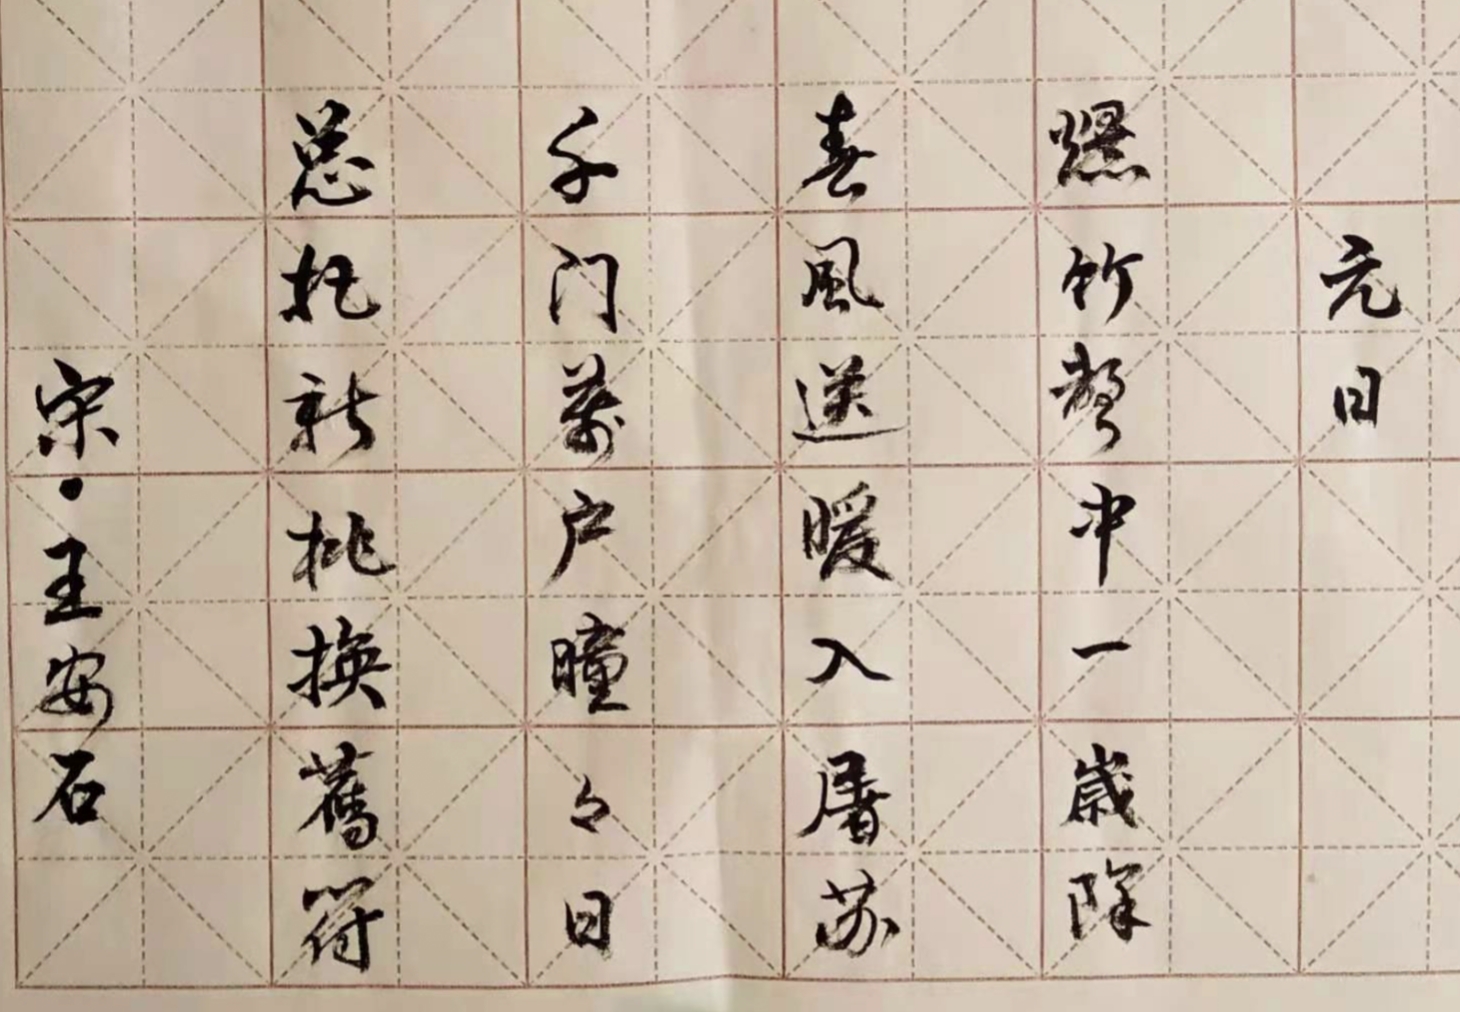 元日
爆竹聲中一歲除
春風送暖入屠苏
千门萬户曈々日
总把新桃換舊符
宋·王安石